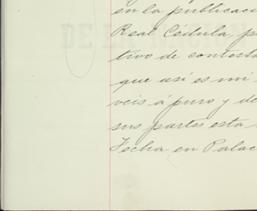 en la publicaci
Real Cédula, p
tivo de contesta
que asi es mi
veis á puro y de
sus partes esta
Fecha en Palac